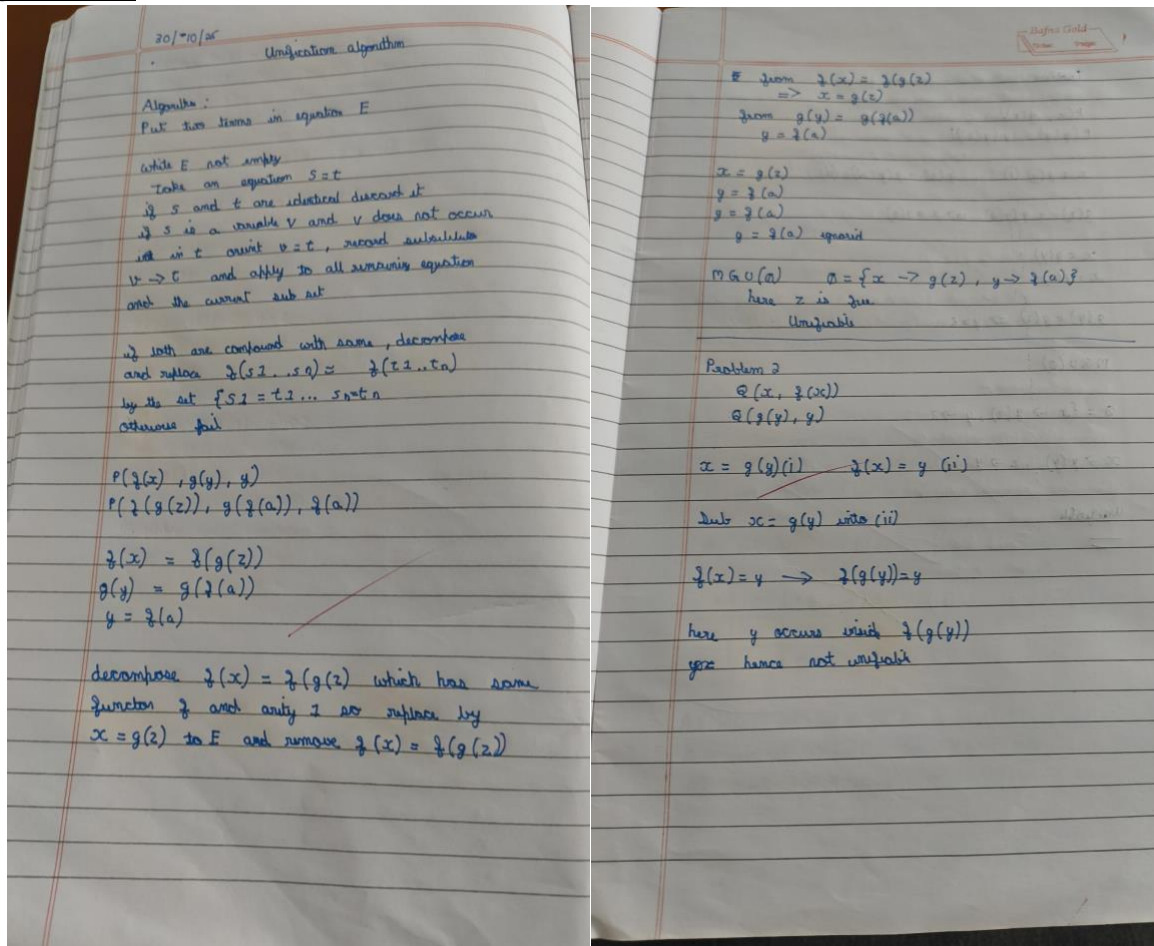 30/10/25
Unification algorithm
Algorithm :
Put two terms in equation E
while E not empty
take an equation s=t
if s and t are identical discard it
if s is a variable v and v does not occur
in t orient v=t, record substitute
v → t and apply to all remaining equation
and the current sub set
if both are compound with same, decompose
and replace f(s1...sn) = f(t1..tn)
by the set {s1 = t1... sn=tn
otherwise fail
P(f(x), g(y), y)
P(f(g(z)), g(f(a)), f(a))
f(x) = f(g(z))
g(y) = g(f(a))
y = f(a)
decompose f(x) = f(g(z) which has same
functor f and arity 1 so replace by
x = g(z) to E and remove f(x) = f(g(z))
Bafna Gold
from f(x) = f(g(z)
=> x = g(z)
from g(y) = g(f(a))
y = f(a)
x = g(z)
y = f(a)
y = f(a)
y = f(a)
MGU(θ) θ = {x -> g(z), y -> f(a)}
here z is free
Unifiable
Problem 2
Q(x, f(x))
Q(g(y), y)
x = g(y)(i) f(x) = y (ii)
Sub x = g(y) into (ii)
f(x) = y → f(g(y))=y
here y occurs f(g(y))
hence not unifiable